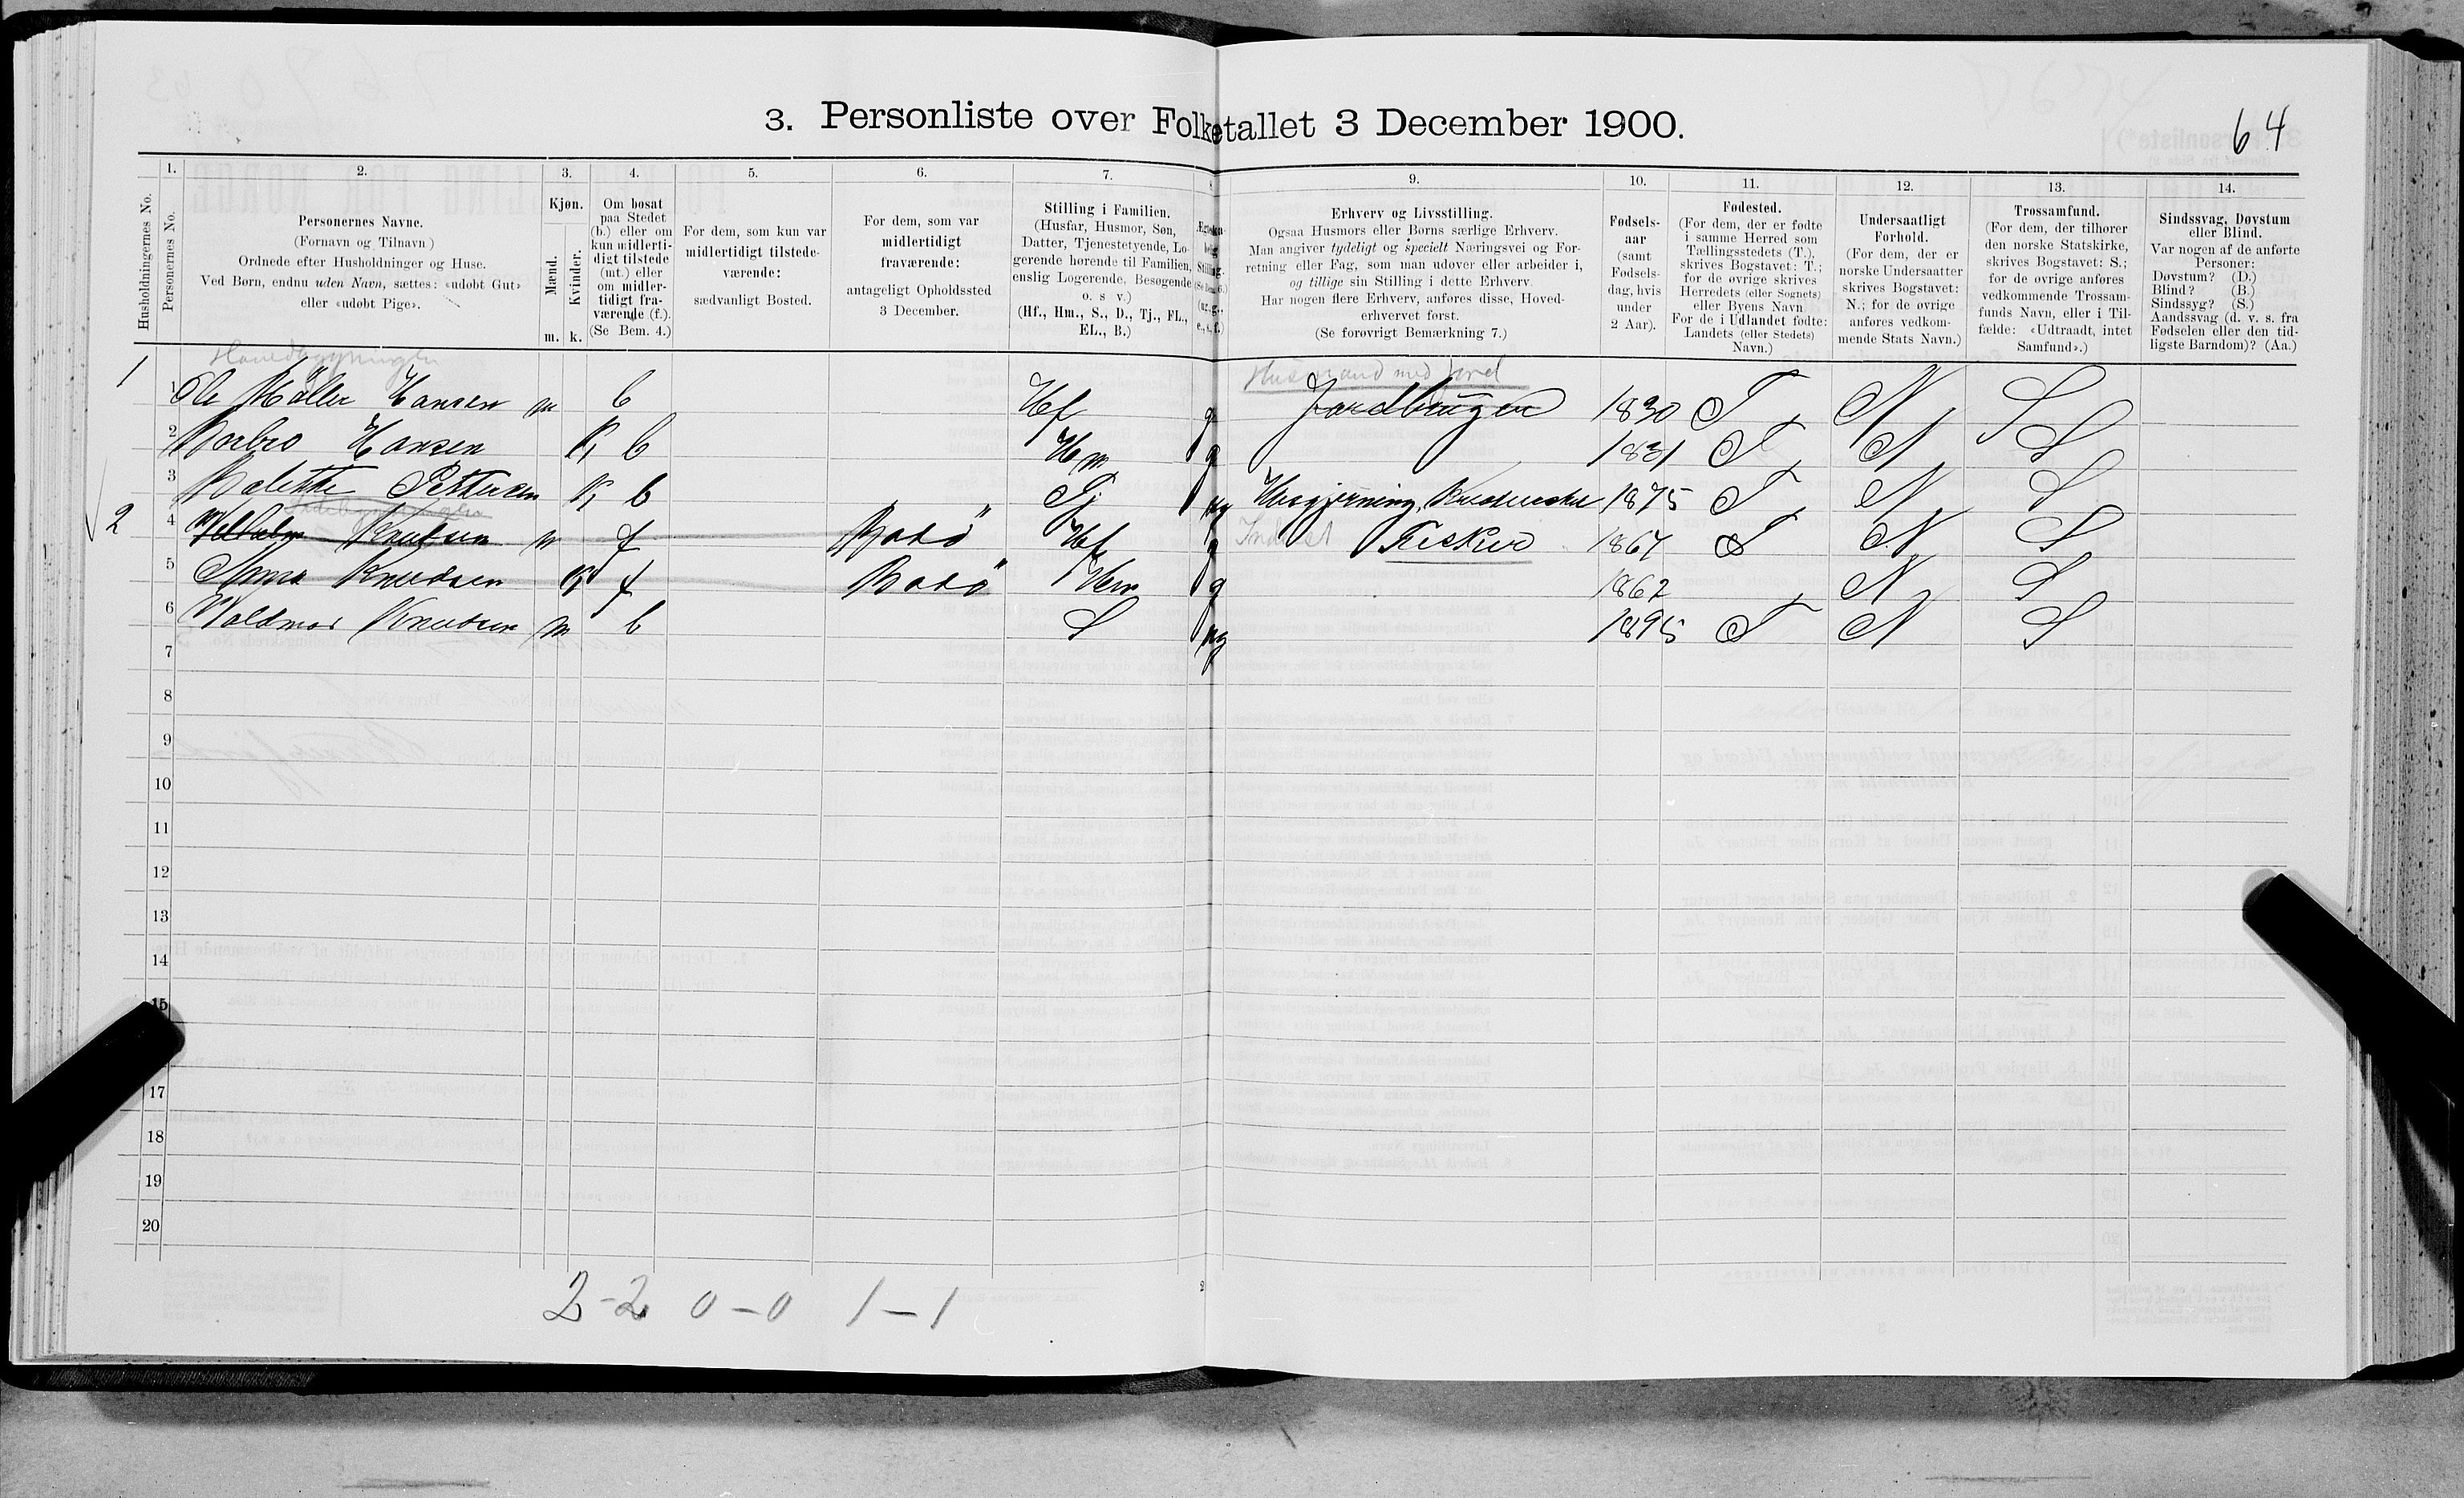 3. Personliste over Folketallet 3 December 1900.
64
Husholdningernes No.
1.
Personernes No.
2.
Personernes Navne.
(Fornavn og Tilnavn)
Ordnede efter Husholdninger og Huse.
Ved Børn, endnu uden Navn, sættes: «udøbt Gut»
eller «udøbt Pige».
3.
Kjøn.
Mænd.
Kvinder.
m. k.
4.
Om bosat
paa Stedet
(b.) eller om
kun midlerti-
digt tilstede
(mt.) eller
om midler-
tidigt fra-
værende (f.).
(Se Bem. 4.)
5.
For dem, som kun var
midlertidigt tilstede-
værende:
sædvanligt Bosted.
6.
For dem, som var
midlertidigt
fraværende:
antageligt Opholdssted
3 December.
7.
Stilling i Familien.
(Husfar, Husmor, Søn,
Datter, Tjenestetyende, Lo-
gerende hørende til Familien,
enslig Logerende, Besøgende
o. s v.)
(Hf., Hm., S., D., Tj., FL.,
EL., B.)
9.
Erhverv og Livsstilling.
Ogsaa Husmors eller Børns særlige Erhverv.
Man angiver tydeligt og specielt Næringsvei og For-
retning eller Fag, som man udøver eller arbeider i,
og tillige sin Stilling i dette Erhverv.
Har nogen flere Erhverv, anføres disse, Hoved-
erhvervet først.
(Se forøvrigt Bemærkning 7.)
10.
Fødsels-
aar
(samt
Fødsels-
dag, hvis
under
2 Aar).
11.
Fødested.
(For dem, der er fødte
i samme Herred som
Tællingsstedets (T.),
skrives Bogstavet: T.;
for de øvrige skrives
Herredets (eller Sognets)
eller Byens Navn
For de i Udlandet fødte:
Landets (eller Stedets)
Navn.)
12.
Undersaatligt
Forhold.
(For dem, der er
norske Undersaatter
skrives Bogstavet:
N.; for de øvrige
anføres vedkom-
mende Stats Navn.)
13.
Trossamfund.
(For dem, der tilhører
den norske Statskirke,
skrives Bogstavet: S.;
for de øvrige anføres
vedkommende Trossam-
funds Navn, eller i Til-
fælde: «Udtraadt, intet
Samfund».)
14.
Sindssvag, Døvstum
eller Blind.
Var nogen af de anførte
Personer:
Døvstum? (D.)
Blind? (B.)
Sindssyg? (S.)
Aandssvag (d. v. s. fra
Fødselen eller den tid-
ligste Barndom)? (Aa.)
Hovedbygningen Husmand med Jord
1 1 Ole Møller Hansen m b Hf g Jordbruger 1830 T N S
2 Barbro Hansen K b Hm g 1831 T N S
3 Petersen K b Tj ug Husgjerning, 1875 T N S
Sidebygningen
2 4 Vilhelm Knudsen m f Bodö Hf g Inderst Fisker 1867 T N S
5 Anna Knudsen K f Bodö Hm g 1862 N S
6 Valdmar Knudsen m b S ug 1895 T N S
7
8
9
10
11
12
13
14
15
17
18
19
20
2-2 0-0 1-1